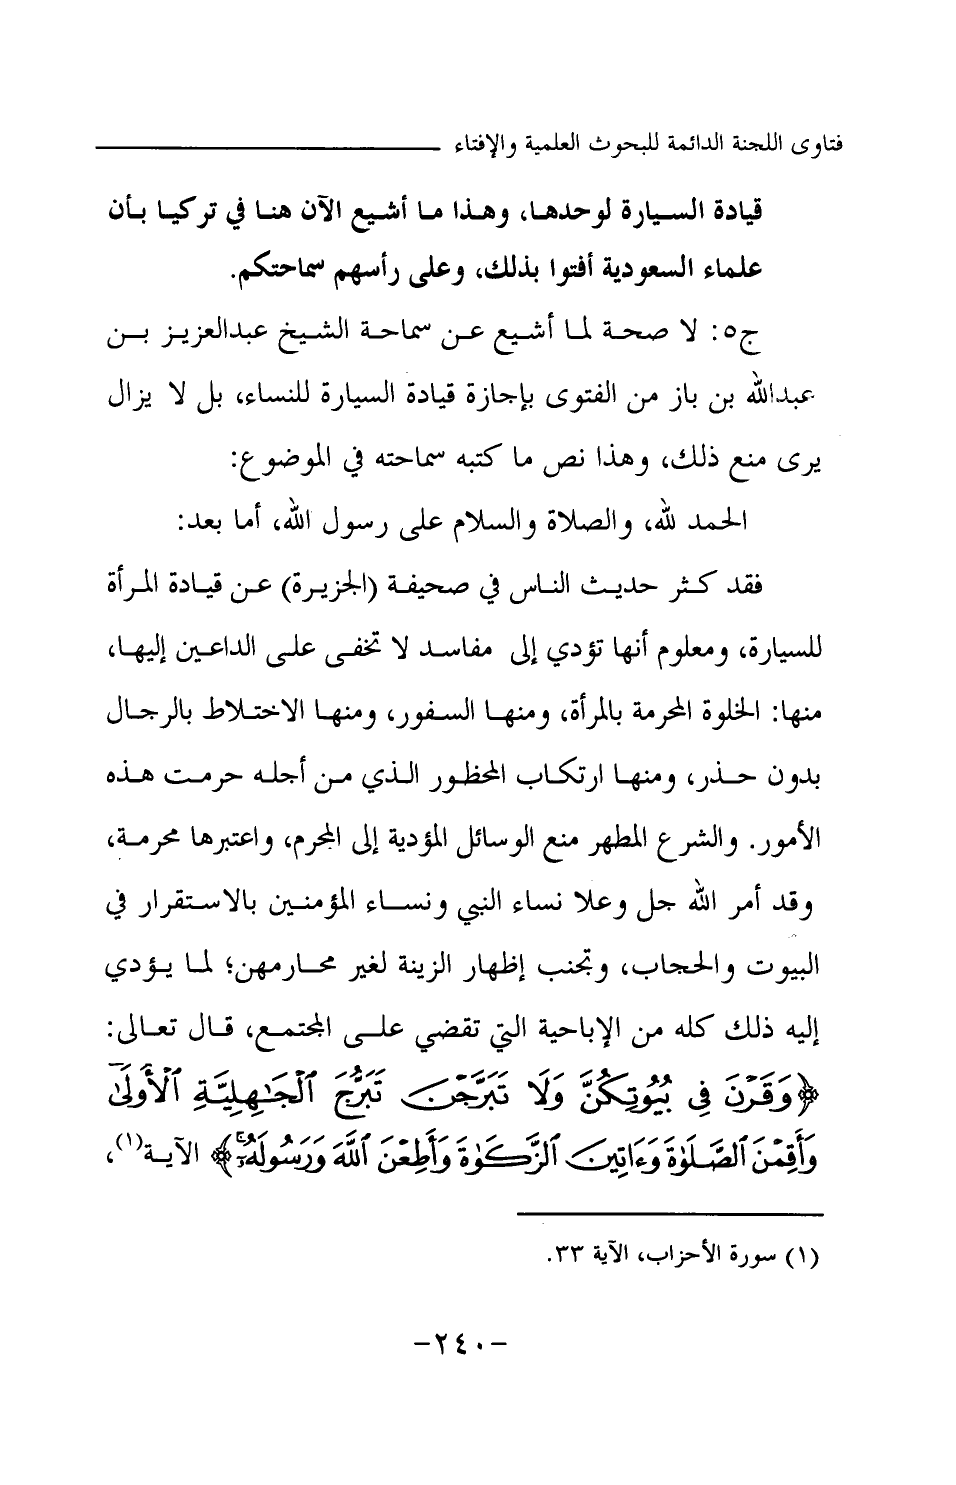 فتاوى اللجنة الدائمة للبحوث العلمية والإفتاء
قيادة السيارة لوحدها، وهذا ما أشيع الآن هنا في تركيا بأن
علماء السعودية أفتوا بذلك، وعلى رأسهم سماحتكم.
ج٥: لا صحة لما أشيع عن سماحة الشيخ عبدالعزيز بن
عبدالله بن باز من الفتوى بإجازة قيادة السيارة للنساء، بل لا يزال
يرى منع ذلك، وهذا نص ما كتبه سماحته في الموضوع:
الحمد لله، والصلاة والسلام على رسول الله، أما بعد:
فقد كثر حديث الناس في صحيفة (الجزيرة) عن قيادة المرأة
للسيارة، ومعلوم أنها تؤدي إلى مفاسد لا تخفى على الداعين إليها،
منها: الخلوة المحرمة بالمرأة، ومنها السفور، ومنها الاختلاط بالرجال
بدون حذر، ومنها ارتكاب المحظور الذي من أجله حرمت هذه
الأمور. والشرع المطهر منع الوسائل المؤدية إلى المجرم، واعتبرها محرمة،
وقد أمر الله جل وعلا نساء النبي ونساء المؤمنين بالاستقرار في
البيوت والحجاب، وتجنب إظهار الزينة لغير محارمهن؛ لما يؤدي
إليه ذلك كله من الإباحية التي تقضي على المجتمع، قال تعالى:
﴿وَقَرْنَ فِى بُيُوتِكُنَّ وَلَا تَبَرَّجْنَ تَبَرُّجَ ٱلْجَـٰهِلِيَّةِ ٱلْأُولَىٰ
وَأَقِمْنَ ٱلصَّلَوٰةَ وَءَاتِينَ ٱلزَّكَوٰةَ وَأَطِعْنَ ٱللَّهَ وَرَسُولَهُۥٓ﴾ الآية(١)،
(١) سورة الأحزاب، الآية ٣٣.
-٢٤٠-